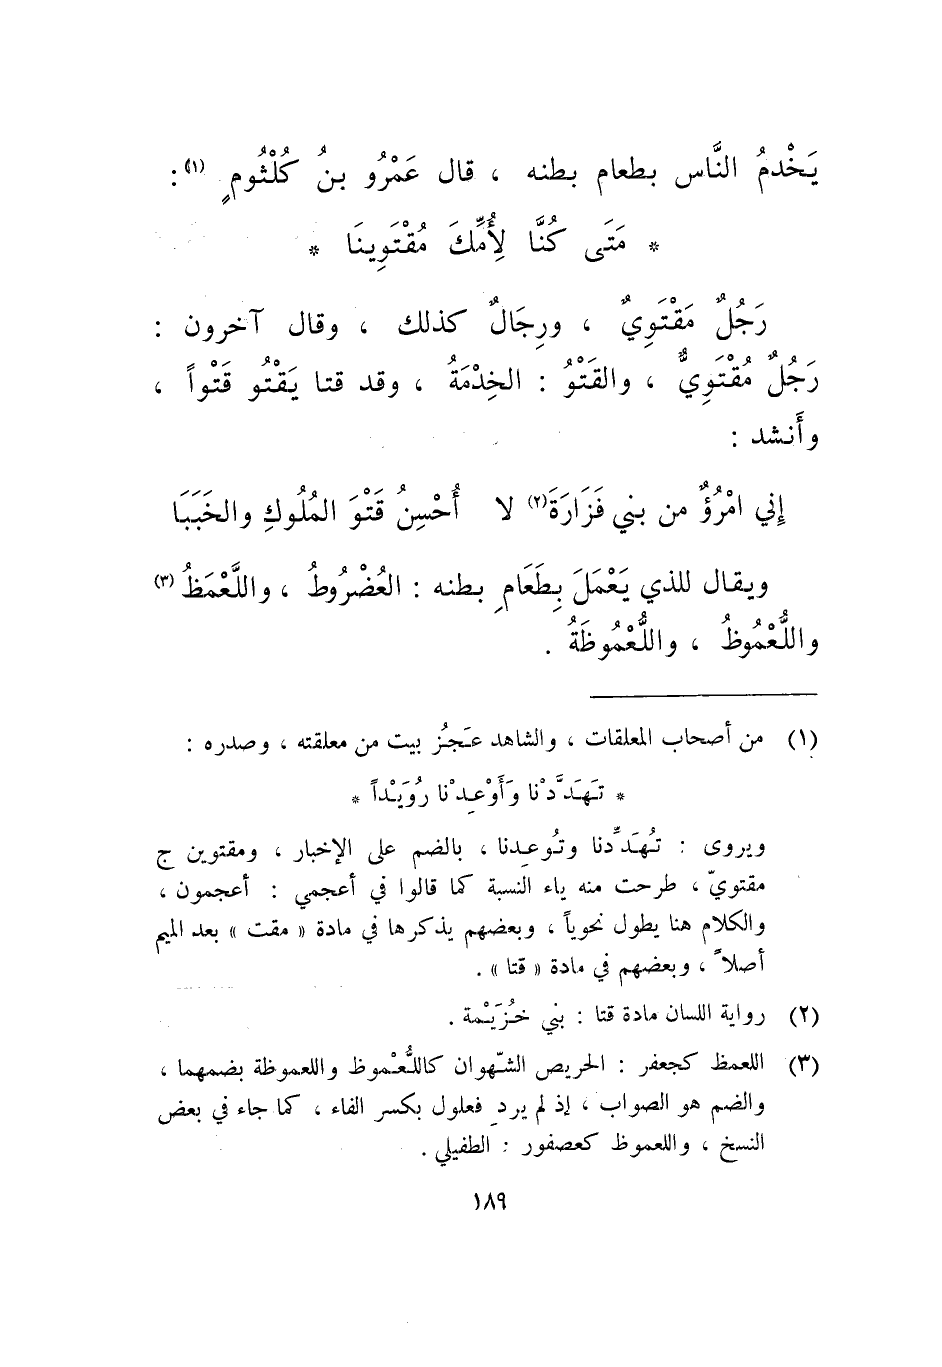 يَخْدمُ النَّاس بطعام بطنه ، قال عَمْرُو بنُ كُلْثُومٍ (١) :
* مَتَى كُنَّا لِأُمِّكَ مُقْتَوِينَا *
رَجُلٌ مَقْتَوِيٌ ، ورِجَالٌ كذلك ، وقال آخرون :
رَجُلٌ مُقْتَوِيٌّ ، والقَتْوُ : الخِدْمَةُ ، وقد قتا يَقْتُو قَتْواً ،
وأَنشد :
إِني امْرُؤٌ من بني فَزَارَةَ(٢) لا أُحْسِنُ قَتْوَ المُلُوكِ والخَبَبَا
ويقال للذي يَعْمَلَ بِطَعَامِ بطنه : العُضْرُوطُ ، واللَّعْمَظُ (٣)
واللُّعْمُوظُ ، واللُّعْمُوظَةُ .
(١) من أصحاب المعلقات ، والشاهد عَجُز بيت من معلقته ، وصدره :
* تَهَدَّدْنا وَأَوْعِدْنا رُوَيْداً *
ويروى : تُهَدِّدنا وتُوعِدنا ، بالضم على الإخبار ، ومقتوين ج
مقتويّ ، طرحت منه ياء النسبة كما قالوا في أعجمي : أعجمون ،
والكلام هنا يطول نحوياً ، وبعضهم يذكرها في مادة « مقت » بعد الميم
أصلاً ، وبعضهم في مادة « قتا » .
(٢) رواية اللسان مادة قتا : بني خُزَيْمة .
(٣) اللعمظ كجعفر : الحريص الشّهوان كاللُّعْموظ واللعموظة بضمهما ،
والضم هو الصواب ، إذ لم يرد فعلول بكسر الفاء ، كما جاء في بعض
النسخ ، واللعموظ كعصفور : الطفيلي .
١٨٩